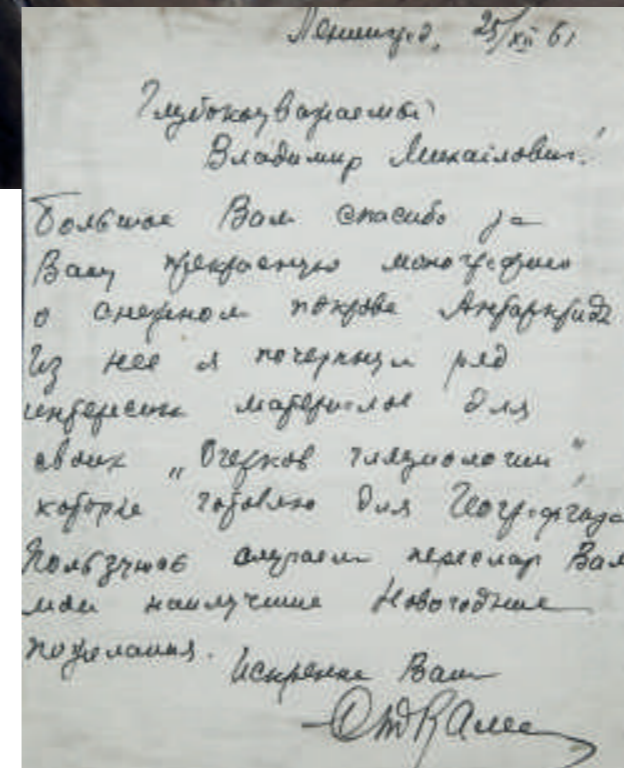 Ленинград, 25/XII 61
Глубокоуважаемый
Владимир Михайлович!
Большое Вам спасибо за
Вашу прекрасную монографию
о снежном покрове Антарктиды
Из нее я почерпнул ряд
интересных материалов для
своих „Очерков гляциологии“,
которые готовлю для Географгиза
Пользуюсь случаем переслать Вам
мои наилучшие Новогодние
пожелания.
Искренне Ваш